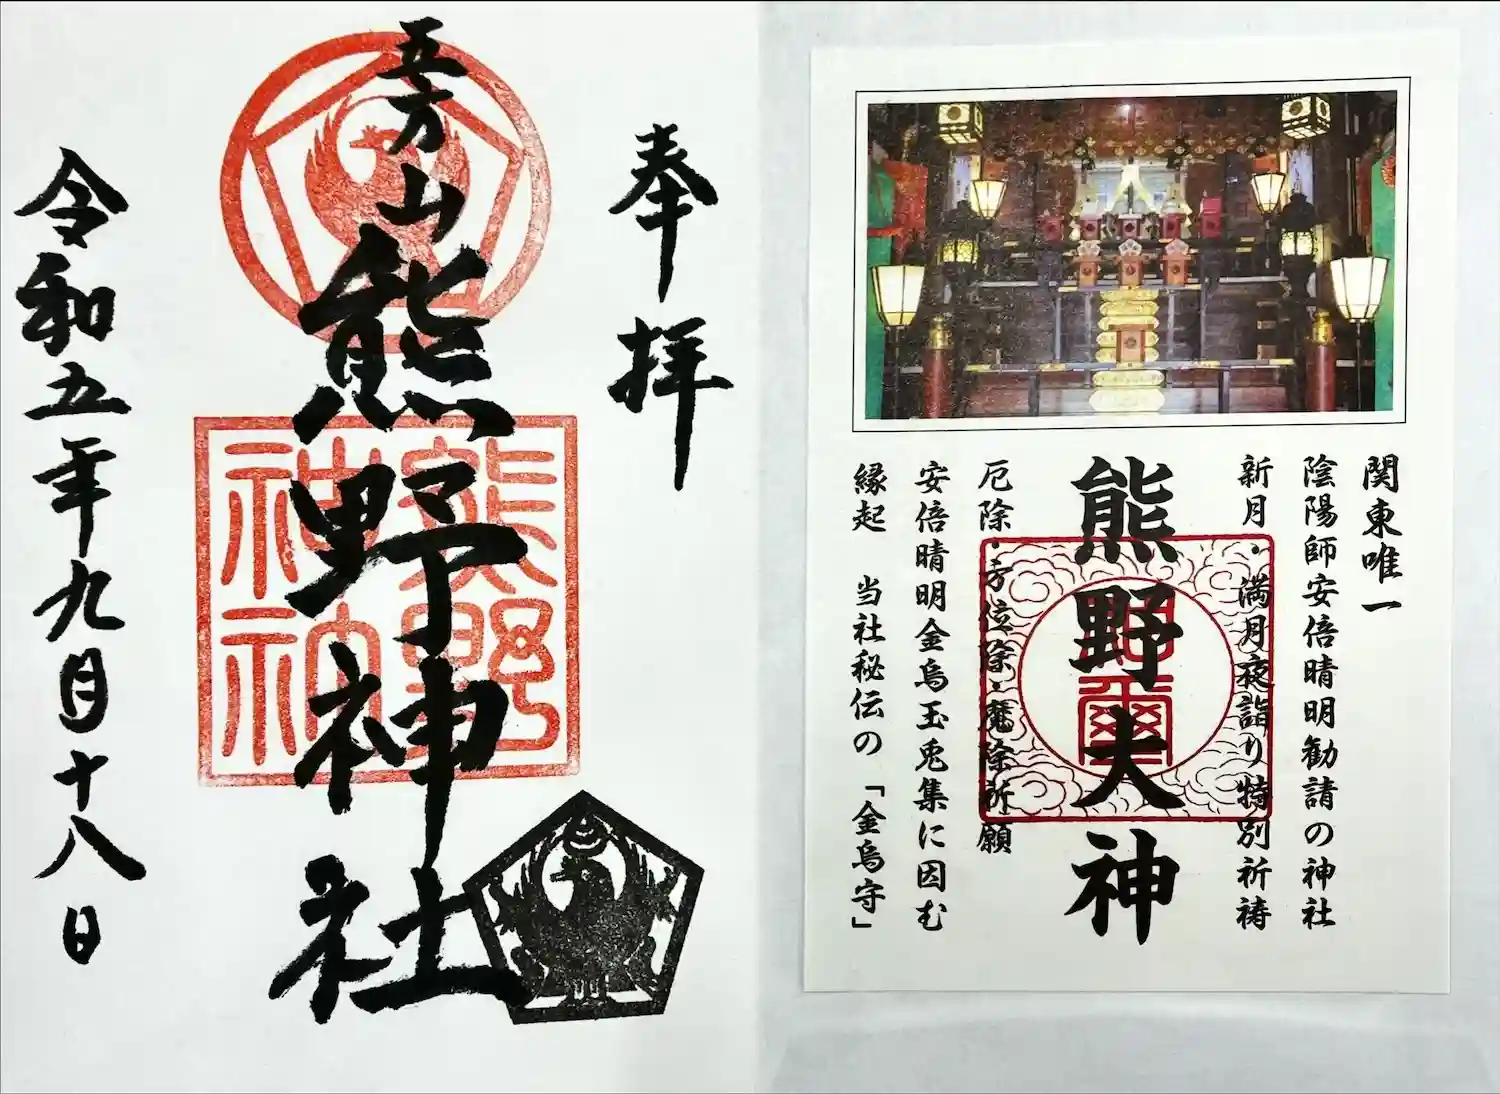 奉拝
五方山熊野神社
令和五年九月十八日
関東唯一
陰陽師安倍晴明勧請の神社
新月・満月夜詣り特別祈祷
熊野大神
厄除・方位除・魔除祈願
安倍晴明金烏玉兎集に因む
縁起　当社秘伝の「金烏守」